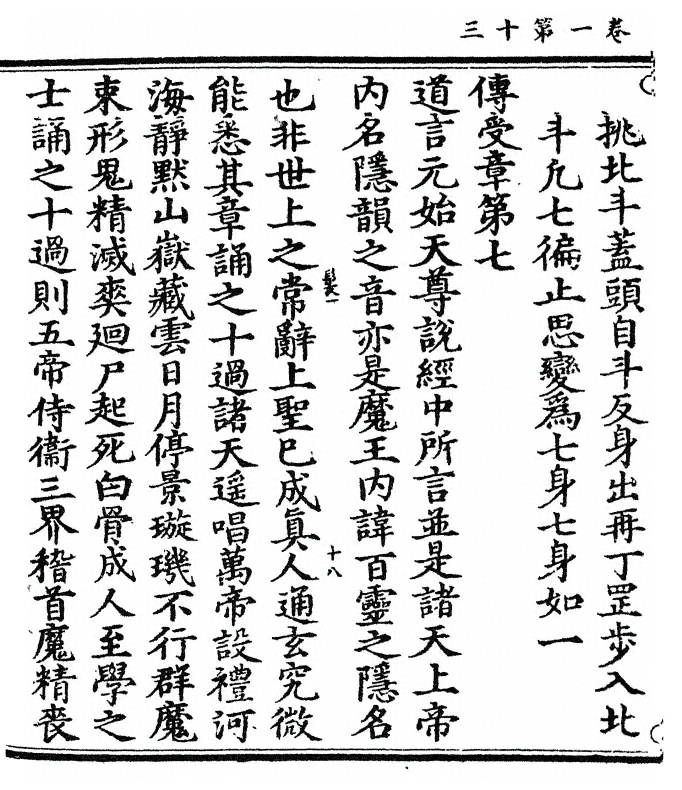 卷一第十三
挑北斗蓋頭自斗反身出再丁罡步入北
斗凡七徧止思變爲七身七身如一
傳受章第七
道言元始天尊說經中所言並是諸天上帝
内名隱韻之音亦是魔王内諱百靈之隱名
也非世上之常辭上聖已成眞人通玄究微
能悉其章誦之十過諸天遥唱萬帝設禮河
海靜默山嶽藏雲日月停景璇璣不行群魔
束形鬼精滅爽廻尸起死白骨成人至學之
士誦之十過則五帝侍衞三界稽首魔精喪
十八